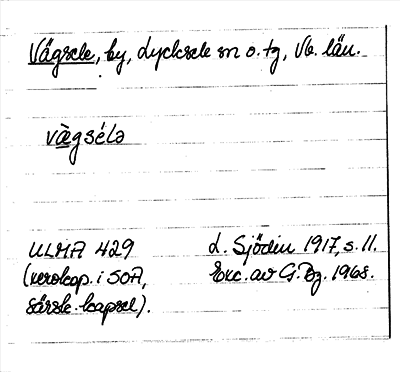 Vägsele, by, Lycksele sn o. tg, Vb. län.
væ̀gsélə
ULMA 429 L. Sjödin 1917, s. 11.
(xerokop. i SOA, Exc. av G. Bg. 1968.
särsk. kapsel).